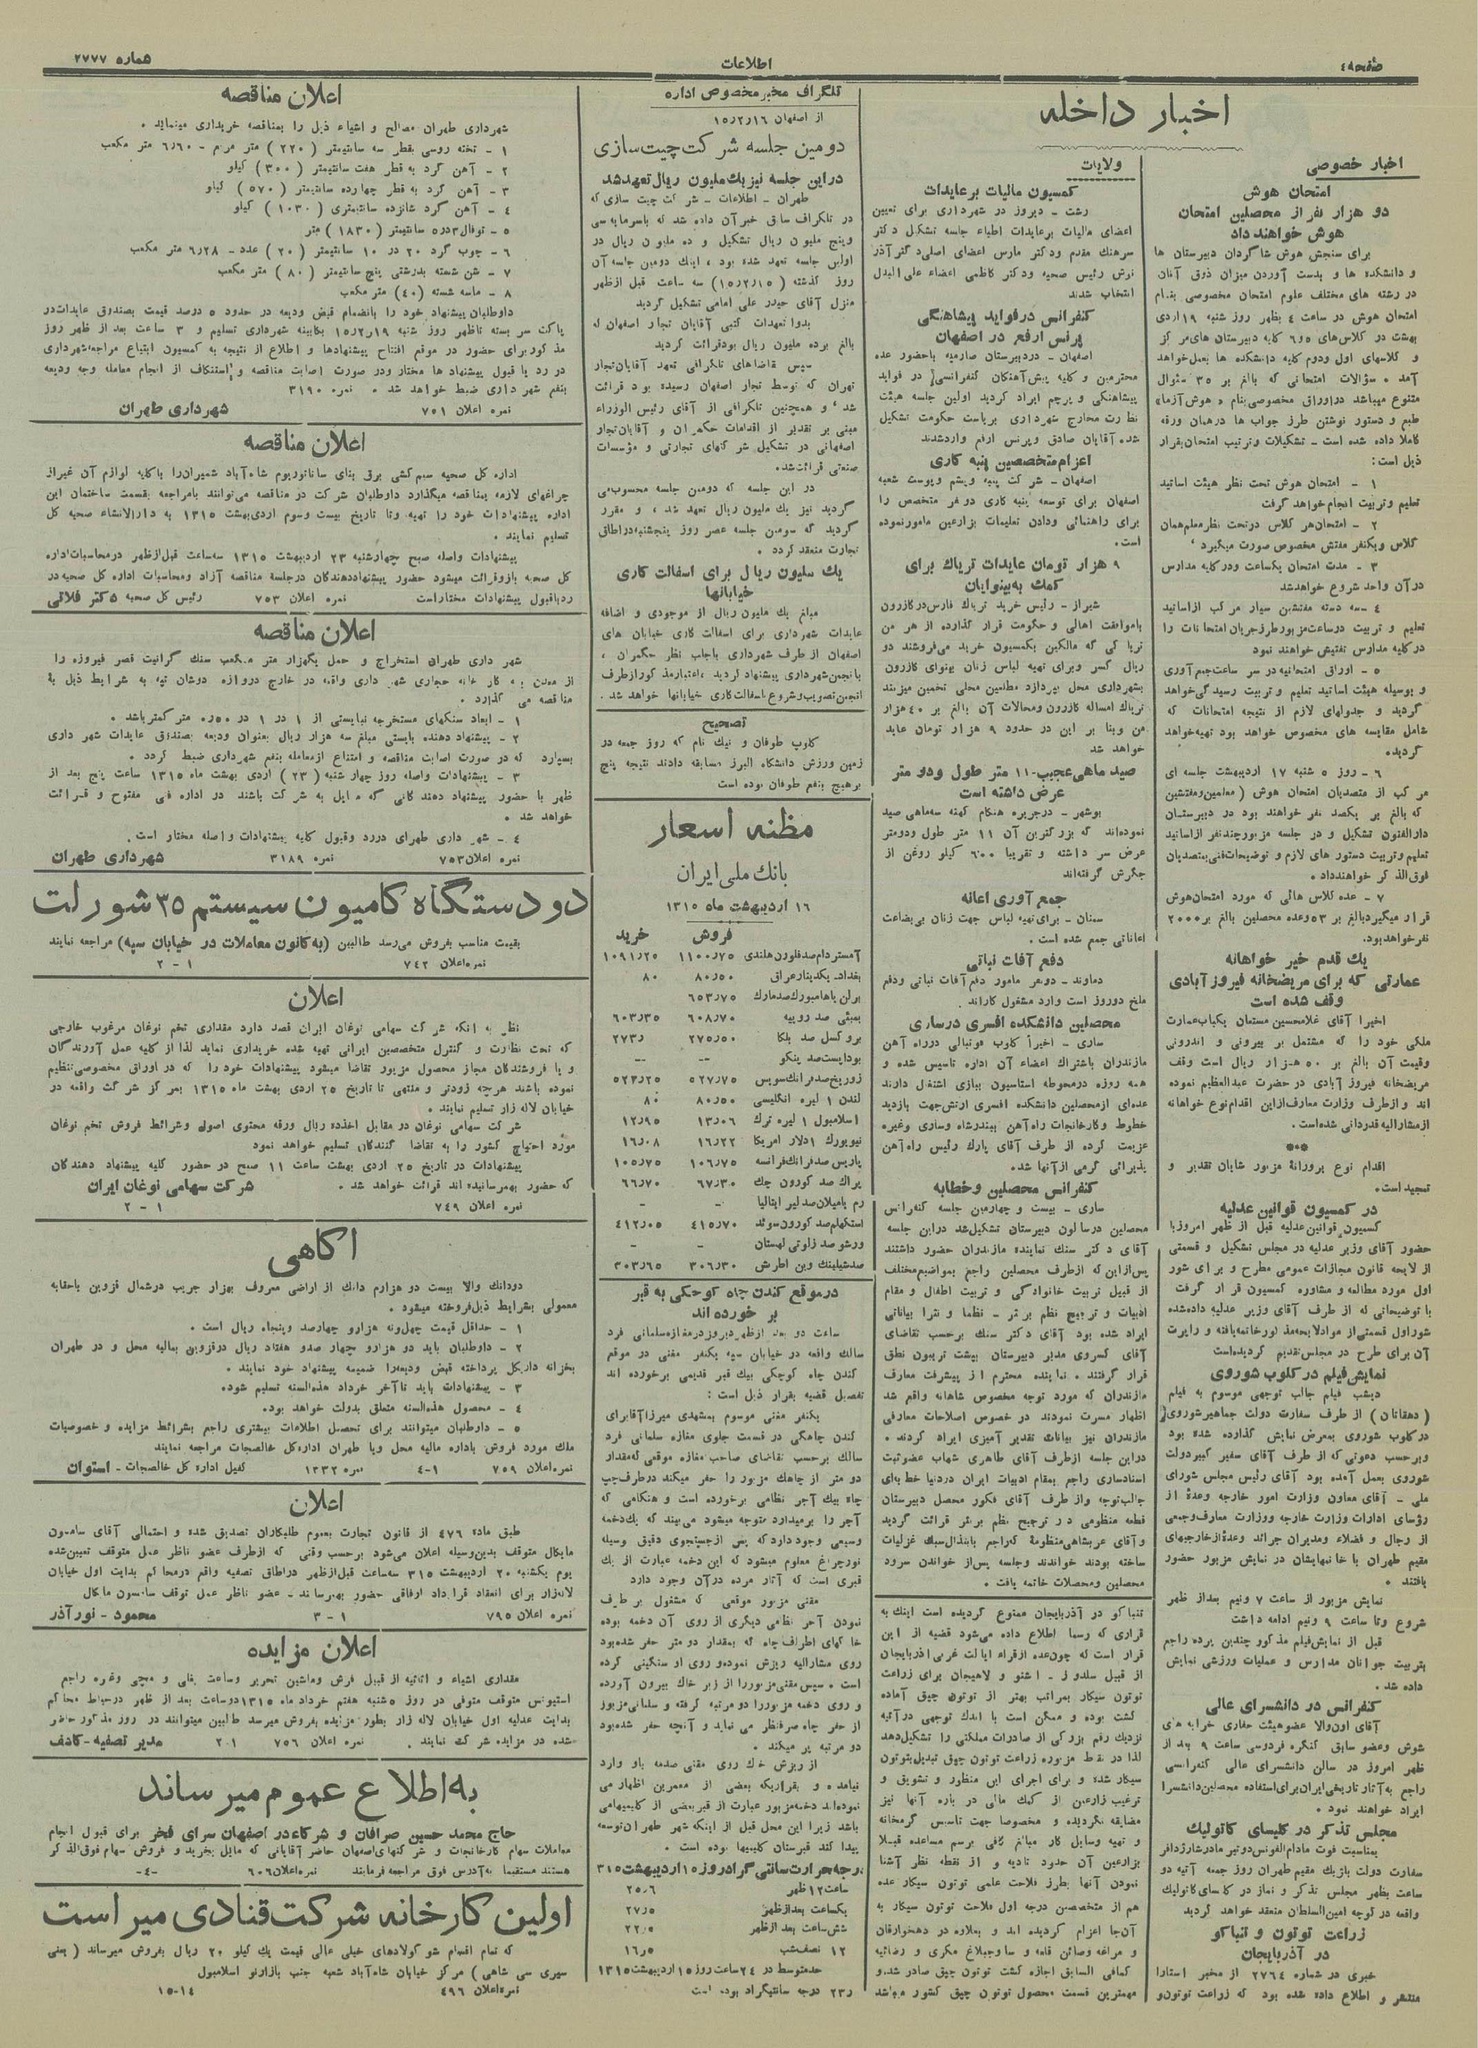 صفحه ٤
اطلاعات
شماره ٢٧٧٧
اخبار داخله
اخبار خصوصی
امتحان هوش
دو هزار نفر از محصلین امتحان
هوش خواهند داد
برای سنجش هوش شاگردان دبیرستان ها
و دانشکده ها و بدست آوردن میزان ذوق آنان
در رشته های مختلف علوم امتحان مخصوصی بنام
امتحان هوش در ساعت ٤ بظهر روز شنبه ١٩ اردی
بهشت در کلاس های ٥و٦ کلیه دبیرستان های مرکز
و کلاسهای اول ودوم کلیه دانشکده ها بعمل خواهد
آمد . سؤالات امتحانی که بالغ بر ٣٥ سئوال
متنوع میباشد دراوراق مخصوصی بنام « هوش آزما»
طبع و دستور نوشتن طرز جواب ها درهمان ورقه
کاملا داده شده است - تشکیلات و ترتیب امتحان بقرار
ذیل است :
١ - امتحان هوش تحت نظر هیئت اساتید
تعلیم و تربیت انجام خواهد گرفت
٢ - امتحان هر کلاس در تحت نظر معلم همان
کلاس ویکنفر مفتش مخصوص صورت میگیرد ،
٣ - مدت امتحان یکساعت ودر کلیه مدارس
در آن واحد شروع خواهد شد
٤ - سه دسته مفتشین سیار مرکب از اساتید
تعلیم و تربیت در ساعت مزبور طرز جریان امتحانات را
در کلیه مدارس تفتیش خواهند نمود
٥ - اوراق امتحانیه در سر ساعت جمع آوری
و بوسیله هیئت اساتید تعلیم و تربیت رسیدگی خواهد
گردید و جدولهای لازم از نتیجه امتحانات که
شامل مقایسه های مخصوص خواهد بود تهیه خواهد
گردید.
٦ - روز ٥ شنبه ١٧ اردیبهشت جلسه ای
مرکب از متصدیان امتحان هوش ( معلمین و مفتشین
که بالغ بر یکصد نفر خواهند بود در دبیرستان
دارالفنون تشکیل و در جلسه مزبور چند نفر از اساتید
تعلیم و تربیت دستور های لازم و توضیحات فنی بمتصدیان
فوق الذکر خواهند داد .
٧ - عده کلاس هائی که مورد امتحان هوش
قرار میگیرد بالغ بر ٥٣ وعده محصلین بالغ بر ٢٠٠٠
نفر خواهد بود .
یك قدم خیر خواهانه
عمارتی که برای مریضخانه فیروز آبادی
وقف شده است
اخیرا آقای غلامحسین مستعان یکباب عمارت
ملکی خود را که مشتمل بر بیرونی و اندرونی
وقیمت آن بالغ بر ٥٠ هزار ریال است وقف
مریضخانه فیروز آبادی در حضرت عبدالعظیم نموده
اند و از طرف وزارت معارف از این اقدام نوع خواهانه
از مشارالیه قدردانی شده است .
***
اقدام نوع پرورانه مزبور شایان تقدیر و
تمجید است .
در کمسیون قوانین عدلیه
کمسیون قوانین عدلیه قبل از ظهر امروز با
حضور آقای وزیر عدلیه در مجلس تشکیل و قسمتی
از لایحه قانون مجازات عمومی مطرح و برای شور
اول مورد مطالعه و مشاوره کمسیون قرار گرفت
با توضیحاتی که از طرف آقای وزیر عدلیه داده شد
شور اول قسمتی از مواد لایحه مذکور خاتمه یافته و راپرت
آن برای طرح در مجلس تقدیم گردیده است
نمایش فیلم در کلوب شوروی
دیشب فیلم جالب توجهی موسوم به فیلم
( دهقانان ) از طرف سفارت دولت جماهیر شوروی
در کلوب شوروی بمعرض نمایش گذارده شده بود
و برحسب دعوتی که از طرف آقای سفیر کبیر دولت
شوروی بعمل آمده بود آقای رئیس مجلس شورای
ملی - آقای معاون وزارت امور خارجه وعدهٔ از
رؤسای ادارات وزارت خارجه و وزارت معارف و جمعی
از رجال و فضلاء و مدیران جرائد وعدهٔ از خارجیهای
مقیم طهران با خانمهایشان در نمایش مزبور حضور
یافتند .
نمایش مزبور از ساعت ٧ ونیم بعد از ظهر
شروع وتا ساعت ٩ ونیم ادامه داشت
قبل از نمایش فیلم مذکور چندین پرده راجع
بتربیت جوانان مدارس و عملیات ورزشی نمایش
داده شد .
کنفرانس در دانشسرای عالی
آقای اون والا عضو هیئت حفاری خرابه های
شوش وعضو سابق کنگره فردوسی ساعت ٩ بعد از
ظهر امروز در سالن دانشسرای عالی کنفرانسی
راجع به آثار تاریخی ایران برای استفاده محصلین دانشسرا
ایراد خواهند نمود .
مجلس تذکر در کلیسای کاتولیك
بمناسبت فوت مادام الفونس دوتیر مادر شارژدافر
سفارت دولت بلژیك مقیم طهران روز جمعه آتیه دو
ساعت بظهر مجلس تذکر و نماز در کلیسای کاتولیك
واقعه در کوچه امین السلطان منعقد خواهد گردید
زراعت توتون و تنباکو
در آذربایجان
خبری در شماره ٢٧٦٤ از مخبر استارا
منتشر و اطلاع داده شده بود که زراعت توتون و
ولایات
کمسیون مالیات برعایدات
رشت - دیروز در شهرداری برای تعیین
اعضای مالیات برعایدات اطباء جلسه تشکیل دکتر
سرهنك مقدم ودکتر مارس اعضای اصلی دکتر آذر
نوش رئیس صحیه ودکتر کاظمی اعضاء علی البدل
انتخاب شدند
کنفرانس در فواید پیشاهنگی
پرنس ارفع در اصفهان
اصفهان - در دبیرستان صارمیه با حضور عده
محترمین و کلیه پیش آهنگان کنفرانسی در فواید
پیشاهنگی و پرچم ایراد گردید اولین جلسه هیئت
نظارت مخارج شهرداری بریاست حکومت تشکیل
شده آقایان صادق وپرنس ارفع وارد شدند
اعزام متخصصین پنبه کاری
اصفهان - شرکت پنبه وپشم وپوست شعبه
اصفهان برای توسعه پنبه کاری دو نفر متخصص را
برای راهنمائی ودادن تعلیمات بزارعین مامور نموده
است .
٩ هزار تومان عایدات تریاك برای
کمك به بینوایان
شیراز - رئیس خرید تریاك فارس در کازرون
با موافقت اهالی و حکومت قرار گذارده از هر من
تریاکی که مالکین بکمسیون خرید می فروشند دو
ریال کسر وبرای تهیه لباس زنان بینوای کازرون
بشهرداری محل بپردازد مطلعین محلی تخمین میزنند
تریاك امساله کازرون ومحالات آن بالغ بر ٤٠ هزار
من وبنا بر این در حدود ٩ هزار تومان عاید
خواهد شد
صید ماهی عجیب - ١١ متر طول ودو متر
عرض داشته است
بوشهر - در جزیره هنگام کهنه سه ماهی صید
نموده اند که بزرگترین آن ١١ متر طول ودومتر
عرض سر داشته و تقریبا ٦٠٠ کیلو روغن از
جگرش گرفته اند
جمع آوری اعانه
سمنان - برای تهیه لباس جهت زنان بی بضاعت
اعاناتی جمع شده است .
دفع آفات نباتی
دماوند - دوهر مامور دفع آفات نباتی ودفع
ملخ دوروز است وارد مشغول کاراند .
محصلین دانشکده افسری در ساری
ساری - اخیراً کلوب فوتبالی در راه آهن
مازندران باشتراك اعضاء آن اداره تاسیس شده و
همه روزه در محوطه استاسیون ببازی اشتغال دارند
عده ای از محصلین دانشکده افسری ارتش جهت بازدید
خطوط و کارخانجات راه آهن ببندر شاه وساری وغیره
عزیمت کرده از طرف آقای پارك رئیس راه آهن
پذیرائی گرمی از آنها شد .
کنفرانس محصلین و خطابه
ساری - بیست و چهارمین جلسه کنفرانس
محصلین در سالون دبیرستان تشکیل شد در این جلسه
آقای دکتر سنك نماینده مازندران حضور داشتند
پس از این که از طرف محصلین راجع بمواضیع مختلف
از قبیل تربیت خانوادگی و تربیت اطفال و مقام
ادبیات و ترجیح نظم بر نثر - نظما و نثرا بیاناتی
ایراد شده بود آقای دکتر سنك برحسب تقاضای
آقای کسروی مدیر دبیرستان بپشت تریبون نطق
قرار گرفتند . نماینده محترم از پیشرفت معارف
مازندران که مورد توجه مخصوص شاهانه واقع شد
اظهار مسرت نمودند در خصوص اصلاحات معارفی
مازندران نیز بیانات تقدیر آمیزی ایراد کردند .
در این جلسه از طرف آقای طاهری شهاب عضو ثبت
اسناد ساری راجع بمقام ادبیات ایران در دنیا خطبه ای
جالب توجه واز طرف آقای فکور محصل دبیرستان
قطعه منظومی در ترجیح نظم بر نثر قرائت گردید
و آقای عربشاهی منظومهٔ که راجع بابتذال سبك غزلیات
ساخته بودند خواندند وجلسه پس از خواندن سرود
محصلین ومحصلات خاتمه یافت .
تنباکو در آذربایجان ممنوع گردیده است اینك به
قراری که رسما اطلاع داده می شود قضیه از این
قرار است که چون عده از قراء ایالت غربی آذربایجان
از قبیل سلدوز - اشنو و لاهیجان برای زراعت
توتون سیگار بمراتب بهتر از توتون چپق آماده
کشت بوده و ممکن است با اندك توجهی در آتیه
نزدیك رقم بزرگی از صادرات مملکتی را تشکیل دهد
لذا در نقاط مزبوره زراعت توتون چپق تبدیل بتوتون
سیگار شده و برای اجرای این منظور و تشویق و
ترغیب زارعین از کمك مالی در باره آنها نیز
مضایقه نگردیده و مخصوصا جهت تاسیس گرمخانه
و تهیه وسایل کار مبالغ کافی برسم مساعده قبلا
بزارعین آن حدود تادیه و از نقطه نظر آشنا
نمودن آنها بطرز فلاحت علمی توتون سیگار عده
هم از متخصصین درجه اول فلاحت توتون سیگار به
آن جا اعزام گردیده اند و بعلاوه در دهخوارقان
و مراغه وصائن قلعه و ساوجبلاغ مکری و رضائیه
کمافی السابق اجازه کشت توتون چپق صادر شده و
مهمترین قسمت محصول توتون چپق کشور میباشد
تلگراف مخبر مخصوص اداره
از اصفهان ١٥/٢/١٦
دومین جلسه شرکت چیت سازی
در این جلسه نیز یك ملیون ریال تعهد شد
طهران - اطلاعات - شرکت چیت سازی که
در تلگراف سابق خبر آن داده شد که با سرمایه سی
وپنج ملیون ریال تشکیل و ده ملیون ریال در
اولین جلسه تعهد شده بود ، اینك دومین جلسه آن
روز گذشته ( ١٥/٢/١٥ ) سه ساعت قبل از ظهر
منزل آقای حیدر علی امامی تشکیل گردید
بدوا تعهدات کتبی آقایان تجار اصفهان که
بالغ برده ملیون ریال بود قرائت گردید
سپس تقاضاهای تلگرافی تعهد آقایان تجار
تهران که توسط تجار اصفهان رسیده بود قرائت
شد ، و همچنین تلگرافی از آقای رئیس الوزراء
مبنی بر تقدیر از اقدامات حکمران و آقایان تجار
اصفهانی در تشکیل شرکتهای تجارتی و مؤسسات
صنعتی قرائت شد .
در این جلسه که دومین جلسه محسوب می
گردید نیز یك ملیون ریال تعهد شد ، و مقرر
گردید که سومین جلسه عصر روز پنجشنبه در اطاق
تجارت منعقد گردد .
یك ملیون ریال برای اسفالت کاری
خیابانها
مبلغ یك ملیون ریال از موجودی و اضافه
عایدات شهرداری برای اسفالت کاری خیابان های
اصفهان از طرف شهرداری باجلب نظر حکمران ،
با نجمن شهرداری پیشنهاد گردید ، اعتبار مذکور از طرف
انجمن تصویب وشروع باسفالت کاری خیابانها خواهد شد .
تصحیح
کلوپ طوفان و نیك نام که روز جمعه در
زمین ورزش دانشگاه البرز مسابقه دادند نتیجه پنج
بر هیچ بنفع طوفان بوده است
مظنه اسعار
بانك ملی ایران
١٦ اردیبهشت ماه ١٣١٥
فروش خرید
آمستردام صد فلورن هلندی ١١٠٠/٧٥ ١٠٩١/٢٥
بغداد یکدینار عراق ٨٠/٥٠ ٨٠
برلن یا هامبورك صد مارك ٦٥٣/٧٥
بمبئی صد روپیه ٦٠٨/٧٠ ٦٠٣/٣٥
بروکسل صد بلکا ٢٧٥/٥٠ ٢٧٣/
بوداپست صد پنکو -- --
زوریخ صد فرانك سویس ٥٢٧/٧٥ ٥٢٣/٢٥
لندن ١ لیره انگلیسی ٨٠/٥٠ ٨٠
اسلامبول ١ لیره ترك ١٣/٠٦ ١٢/٩٥
نیویورك ١ دلار امریکا ١٦/٢٢ ١٦/٠٨
پاریس صد فرانك فرانسه ١٠٦/٧٥ ١٠٥/٧٥
پراك صد کورون چك ٦٧/٣٠ ٦٦/٧٠
رم یا میلان صد لیر ایتالیا - -
استکهلم صد کورون سوئد ٤١٥/٧٠ ٤١٢/٠٥
ورشو صد زلوتی لهستان - -
صد شیلینك وین اطرش ٣٠٦/٣٠ ٣٠٣/٦٥
در موقع کندن چاه کوچکی به قبر
بر خورده اند
ساعت دو بعد از ظهر دیروز در مغازه سلمانی فرد
سالك واقعه در خیابان سپه یکنفر مقنی در موقع
کندن چاه کوچکی بیك قبر قدیمی برخورده اند
تفصیل قضیه بقرار ذیل است :
یکنفر مقنی موسوم بمشهدی میرزا آقا برای
کندن چاهکی در قسمت جلوی مغازه سلمانی فرد
سالك برحسب تقاضای صاحب مغازه موقعی که مقدار
دو متر از چاهك مزبور را حفر میکند در طرف چپ
چاه بیك آجر نظامی برخورده است و هنگامی که
آجر را بر میدارد متوجه میشود می بیند که یك دخمه
وسیعی وجود دارد که پس از جستجوی دقیق وسیله
نور چراغ معلوم میشود که این دخمه عبارت از یك
قبری است که آثار مرده در آن وجود دارد
مقنی مزبور موقعی که مشغول بر طرف
نمودن آجر نظامی دیگری از روی آن دخمه بوده
خاکهای اطراف چاه که بمقدار دو متر حفر شده بود
روی مشارالیه ریزش نموده و روی او سنگینی کرده
است . سپس مقنی مزبور را از زیر خاك بیرون آورده
و روی دخمه مزبور را دو مرتبه گرفته و سلمانی مزبور
از حفر چاه صرفنظر می نماید و آنچه حفر شده بود
دو مرتبه پر میکند .
از ریزش خاك روی مقنی صدمه باو وارد
نیامده و بقراریکه بعضی از معمرین اظهار می
نموده اند دخمه مزبور عبارت از قبر بعضی از کلیمیهامی
باشد زیرا این محل قبل از اینکه شهر طهران توسعه
پیدا کند قبرستان کلیمیها بوده است .
درجه حرارت سانتی گراد روز ١٥ اردیبهشت ٣١٥
ساعت ١٢ ظهر ٢٥/٦
یکساعت بعد از ظهر ٢٧/٥
شش ساعت بعد از ظهر ٢٢/٥
١٢ نصف شب ١٦/٥
حد متوسط در ٢٤ ساعت روز ١٥ اردیبهشت ١٣١٥
٢٣/ درجه سانتیگراد بوده است
اعلان مناقصه
شهرداری طهران مصالح و اشیاء ذیل را بمناقصه خریداری مینماید .
١ - تخته روسی بقطر سه سانتیمتر ( ٢٢٠ ) متر مربع - ٦/٦٠ متر مکعب
٢ - آهن گرد به قطر هفت سانتیمتر ( ٣٠٠ ) کیلو
٣ - آهن گرد به قطر چهارده سانتیمتر ( ٥٧٠ ) کیلو
٤ - آهن گرد شانزده سانتیمتری ( ١٠٣٠ ) کیلو
٥ - توفال ٣ در ٥ سانتیمتر ( ١٨٣٠ ) متر
٦ - چوب گرد ٢٠ در ١٠ سانتیمتر ( ٢٠ ) عدد - ٦/٢٨ متر مکعب
٧ - شن شسته بدرشتی پنج سانتیمتر ( ٨٠ ) متر مکعب
٨ - ماسه شسته (٤٠) متر مکعب
داوطلبان پیشنهاد خود را بانضمام قبض ودیعه در حدود ٥ درصد قیمت بصندوق عایدات در
پاکت سر بسته تا ظهر روز شنبه ١٥/٢/١٩ بکابینه شهرداری تسلیم و ٣ ساعت بعد از ظهر روز
مذکور برای حضور در موقع افتتاح پیشنهادها و اطلاع از نتیجه به کمسیون ابتیاع مراجعه شهرداری
در رد یا قبول پیشنهاد ها مختار ودر صورت اصابت مناقصه و استنکاف از انجام معامله وجه ودیعه
بنفع شهرداری ضبط خواهد شد . نمره ٣١٩٠
نمره اعلان ٧٥١ شهرداری طهران
اعلان مناقصه
اداره کل صحیه سیم کشی برق بنای ساناتوریوم شاه آباد شمیران را با کلیه لوازم آن غیر از
چراغهای لازمه بمناقصه میگذارد داوطلبان شرکت در مناقصه می توانند بامراجعه بقسمت ساختمان این
اداره پیشنهادات خود را تهیه وتا تاریخ بیست وسوم اردی بهشت ١٣١٥ به دارالانشاء صحیه کل
تسلیم نمایند .
پیشنهادات واصله صبح چهارشنبه ٢٣ اردیبهشت ١٣١٥ سه ساعت قبل از ظهر در محاسبات اداره
کل صحیه باز وقرائت میشود حضور پیشنهاد دهندگان در جلسه مناقصه آزاد ومحاسبات اداره کل صحیه در
رد یا قبول پیشنهادات مختار است نمره اعلان ٧٥٣ رئیس کل صحیه دکتر فلاتی
اعلان مناقصه
شهر داری طهران استخراج و حمل یکهزار متر مکعب سنك گرانیت قصر فیروزه را
از معدن به کارخانه حجاری شهر داری واقعه در خارج دروازه دوشان تپه به شرایط ذیل به
مناقصه می گذارد .
١ - ابعاد سنگهای مستخرجه نبایستی از ١ در ١ در ٠/٥٠ متر کمتر باشد .
٢ - پیشنهاد دهنده بایستی مبلغ سه هزار ریال بعنوان ودیعه بصندوق عایدات شهر داری
بسپارد که در صورت اصابت مناقصه و امتناع از معامله بنفع شهرداری ضبط گردد .
٣ - پیشنهادات واصله روز چهار شنبه ( ٢٣ ) اردی بهشت ماه ١٣١٥ ساعت پنج بعد از
ظهر با حضور پیشنهاد دهندگانی که مایل به شرکت باشند در اداره فنی مفتوح و قرائت
خواهد شد .
٤ - شهر داری طهرای دررد وقبول کلیه پیشنهادات واصله مختار است .
نمره اعلان ٧٥٣ نمره ٣١٨٩ شهرداری طهران
دو دستگاه کامیون سیستم ٣٥ شورلت
بقیمت مناسب بفروش می رسد طالبین (به کانون معاملات در خیابان سپه) مراجعه نمایند
نمره اعلان ٧٤٢ ١ - ٢
اعلان
نظر به اینکه شرکت سهامی نوغان ایران قصد دارد مقداری تخم نوغان مرغوب خارجی
که تحت نظارت و کنترل متخصصین ایرانی تهیه شده خریداری نماید لذا از کلیه عمل آورندگان
و یا فروشندگان مجاز محصول مزبور تقاضا میشود پیشنهادات خود را که در اوراق مخصوصی تنظیم
نموده باشند هرچه زودتر و منتهی تا تاریخ ٢٥ اردی بهشت ماه ١٣١٥ بمرکز شرکت واقعه در
خیابان لاله زار تسلیم نمایند .
شرکت سهامی نوغان در مقابل اخذ ده ریال ورقه محتوی اصول وشرائط فروش تخم نوغان
مورد احتیاج کشور را به تقاضا کنندگان تسلیم خواهد نمود
پیشنهادات در تاریخ ٢٥ اردی بهشت ساعت ١١ صبح در حضور کلیه پیشنهاد دهندگان
که حضور بهمرسانیده اند قرائت خواهد شد . شرکت سهامی نوغان ایران
نمره اعلان ٧٤٩ ١ - ٢
آگاهی
دودانك والا بیست دو هزارم دانك از اراضی معروف بهزار جریب در شمال قزوین باحقابه
معمولی بشرایط ذیل فروخته میشود .
١ - حداقل قیمت چهل ونه هزار و چهارصد وپنجاه ریال است .
٢ - داوطلبان باید دو هزار و چهار صدو هفتاد ریال در قزوین بمالیه محل و در طهران
بخزانه داری کل پرداخته قبض ودیعه را ضمیمه پیشنهاد خود نمایند .
٣ - پیشنهادات باید تا آخر خرداد هذه السنه تسلیم شود .
٤ - محصول هذه السنه متعلق بدولت خواهد بود .
٥ - داوطلبان میتوانند برای تحصیل اطلاعات بیشتری راجع بشرائط مزایده و خصوصیات
ملك مورد فروش باداره مالیه محل ویا طهران اداره کل خالصجات مراجعه نمایند
نمره اعلان ٧٥٩ ١-٤ نمره ١٣٣٢ کفیل اداره کل خالصجات - استوان
اعلان
طبق ماده ٤٧٦ از قانون تجارت بعموم طلبکاران تصدیق شده و احتمالی آقای سامسون
مایکال متوقف بدین وسیله اعلان می شود برحسب وقتی که از طرف عضو ناظر عمل متوقف تعیین شده
یوم یکشنبه ٢٠ اردیبهشت ٣١٥ سه ساعت قبل از ظهر در اطاق تصفیه واقع در محاکم بدایت اول خیابان
لاله زار برای انعقاد قرارداد ارفاقی حضور بهمرسانند - عضو ناظر عمل توقف سامسون مایکال
نمره اعلان ٧٩٥ ١ - ٣ محمود - نور آذر
اعلان مزایده
مقداری اشیاء و اثاثیه از قبیل فرش وماشین تحریر وساعت بغلی و مچی وغیره راجع
استپونس متوقف متوفی در روز ٥ شنبه هفتم خرداد ماه ١٣١٥ دو ساعت بعد از ظهر در حیاط محاکم
بدایت عدلیه اول خیابان لاله زار بطور مزایده بفروش میرسد طالبین میتوانند در روز مذکور حاضر
شده در مزایده شرکت نمایند . نمره اعلان ٧٥٦ ٢-١ مدیر تصفیه - کاشف
به اطلاع عموم میرساند
حاج محمد حسین صرافان و شرکاء در اصفهان سرای فخر برای قبول انجام
معاملات سهام کارخانجات و شرکتهای اصفهان حاضر آقایانی که مایل بخرید و فروش سهام فوق الذکر
هستند مستقیما به آدرس فوق مراجعه فرمایند نمره اعلان ٦٠٦ -٤-
اولین کارخانه شرکت قنادی میر است
که تمام اقسام شوکولادهای خیلی عالی قیمت یك کیلو ٢٠ ریال بفروش میرساند ( یعنی
سیری سی شاهی ) مرکز خیابان شاه آباد شعبه جنب بازار نو اسلامبول
نمره اعلان ٤٩٦ ١٤-١٥